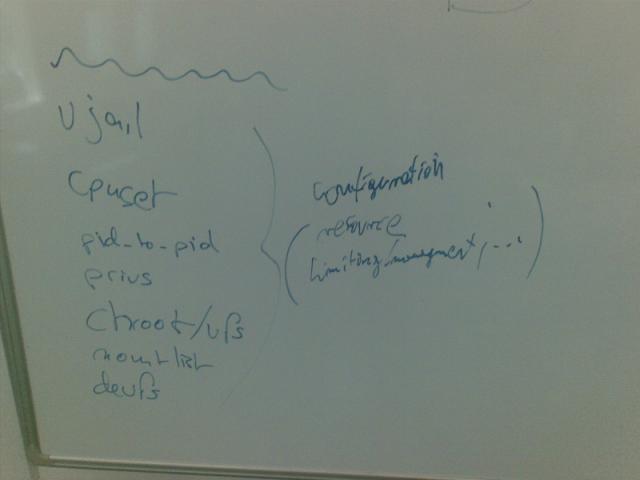 vjail
cpuset
pid-to-pid
privs
chroot/vfs
mountlist
devfs
configuration
(resource
limiting/management, ...)